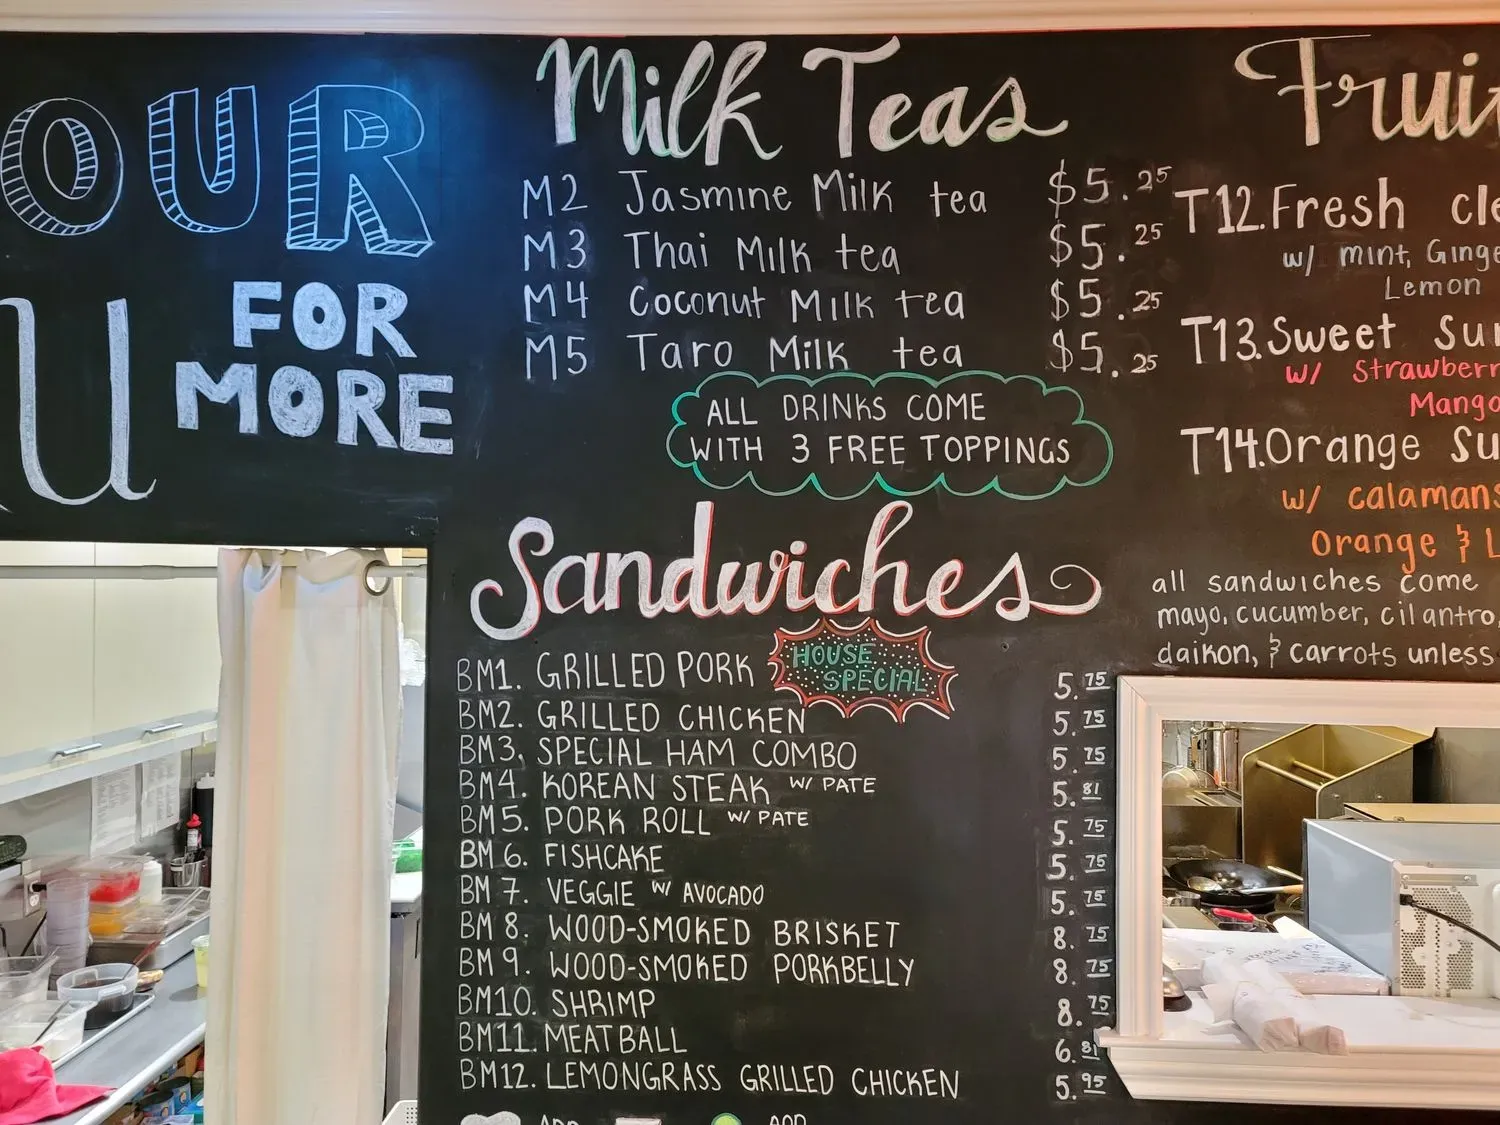 OUR
FOR
MORE
U
Milk Teas
M2 Jasmine Milk tea $5.25
M3 Thai Milk tea $5.25
M4 Coconut Milk tea $5.25
M5 Taro Milk tea $5.25
ALL DRINKS COME
WITH 3 FREE TOPPINGS
Sandwiches
BM1. GRILLED PORK HOUSE SPECIAL 5.75
BM2. GRILLED CHICKEN 5.75
BM3. SPECIAL HAM COMBO 5.75
BM4. KOREAN STEAK W/ PATE 5.81
BM5. PORK ROLL W/ PATE 5.75
BM 6. FISHCAKE 5.75
BM 7. VEGGIE W/ AVOCADO 5.75
BM 8. WOOD-SMOKED BRISKET 8.75
BM 9. WOOD-SMOKED PORKBELLY 8.75
BM10. SHRIMP 8.75
BM11. MEATBALL 6.81
BM12. LEMONGRASS GRILLED CHICKEN 5.95
ADD ADD
Frui
T12. Fresh cle
w/ mint, Ginge
Lemon
T13. Sweet Su
w/ Strawberr
Mango
T14. Orange Su
w/ calamans
Orange & L
all sandwiches come
mayo, cucumber, cilantro,
daikon, & carrots unless